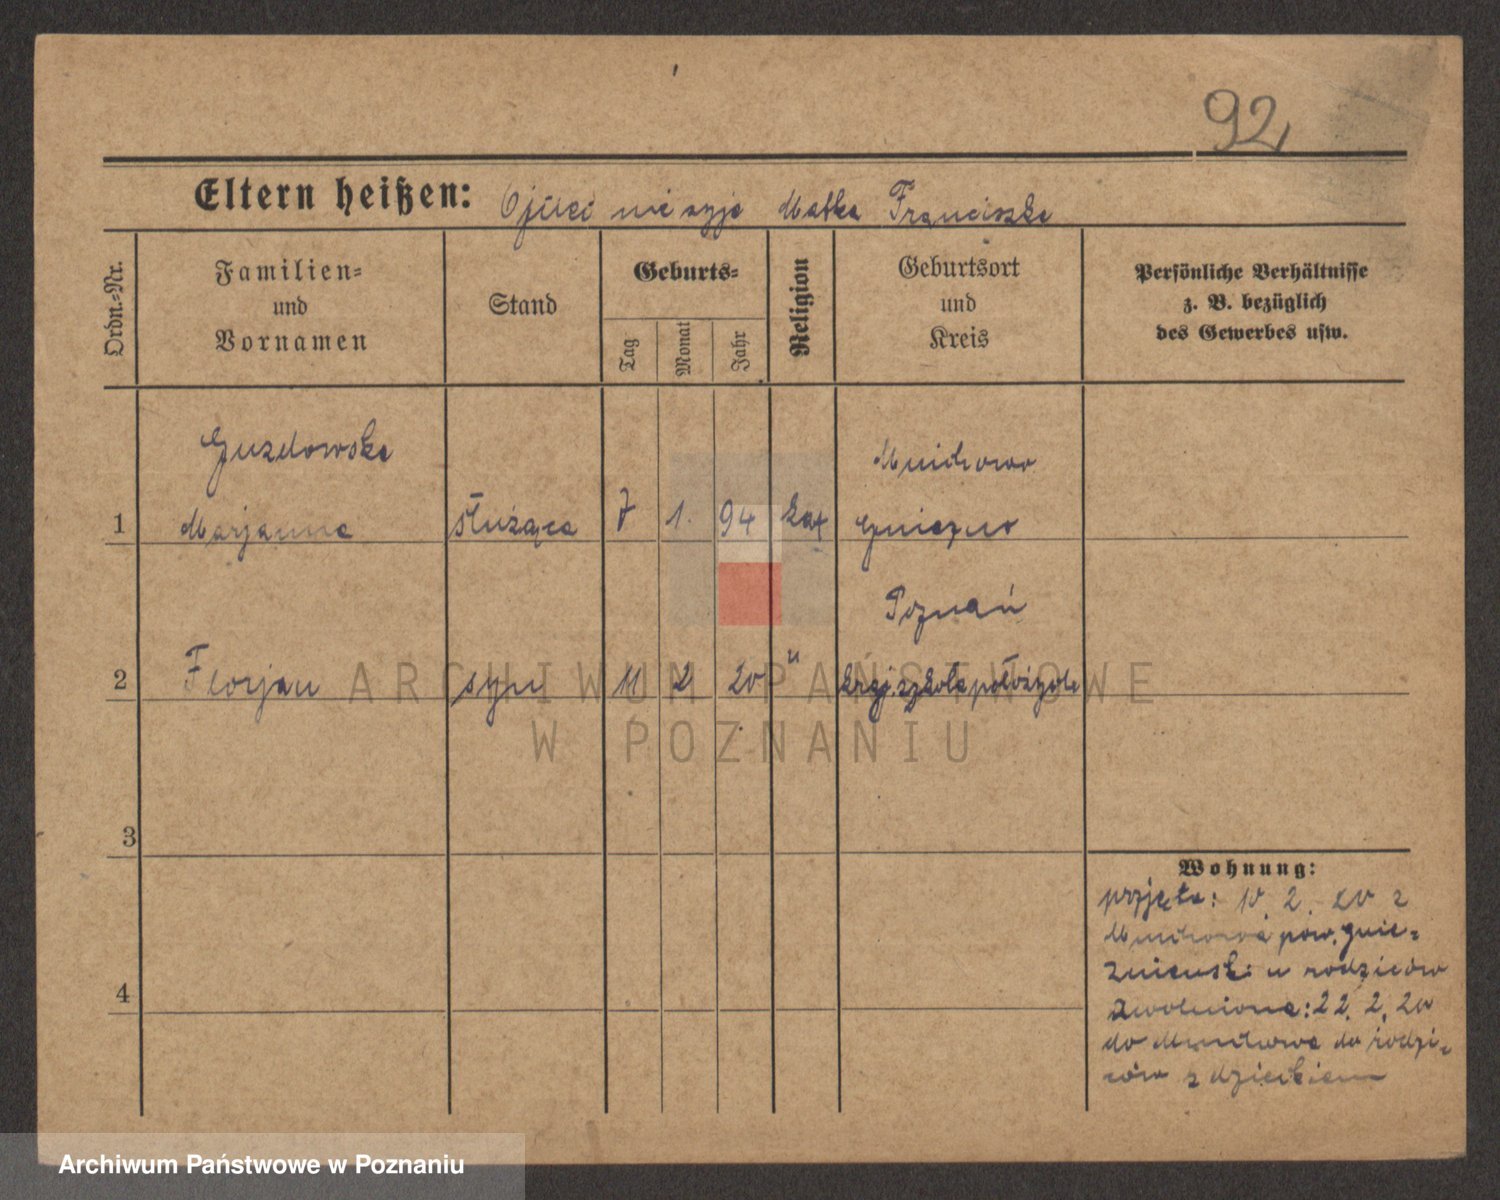 92
Eltern heißen: Ojciec nie żyje Matka Franciszka
Ordn.-Nr.
Familien-
und
Vornamen
Stand
Geburts-
Tag
Monat
Jahr
Religion
Geburtsort
und
Kreis
Persönliche Verhältnisse
z. B. bezüglich
des Gewerbes usw.
Guzdowska
Mnichowo
1 Marjanna służąca 7 1. 94 kat Gniezno
Poznań
2 Florjan syn 11 2 20 " kraj. szkoła położych
3
4
Wohnung:
przyjęta: 10. 2. 20 z
Mnichowa pow. gnie-
źnieńsk: u rodziców
zwolniona: 22. 2. 20
do Mnichowa do rodzi-
ców z dzieckiem
ARCHIWUM PAŃSTWOWE
W POZNANIU
Archiwum Państwowe w Poznaniu